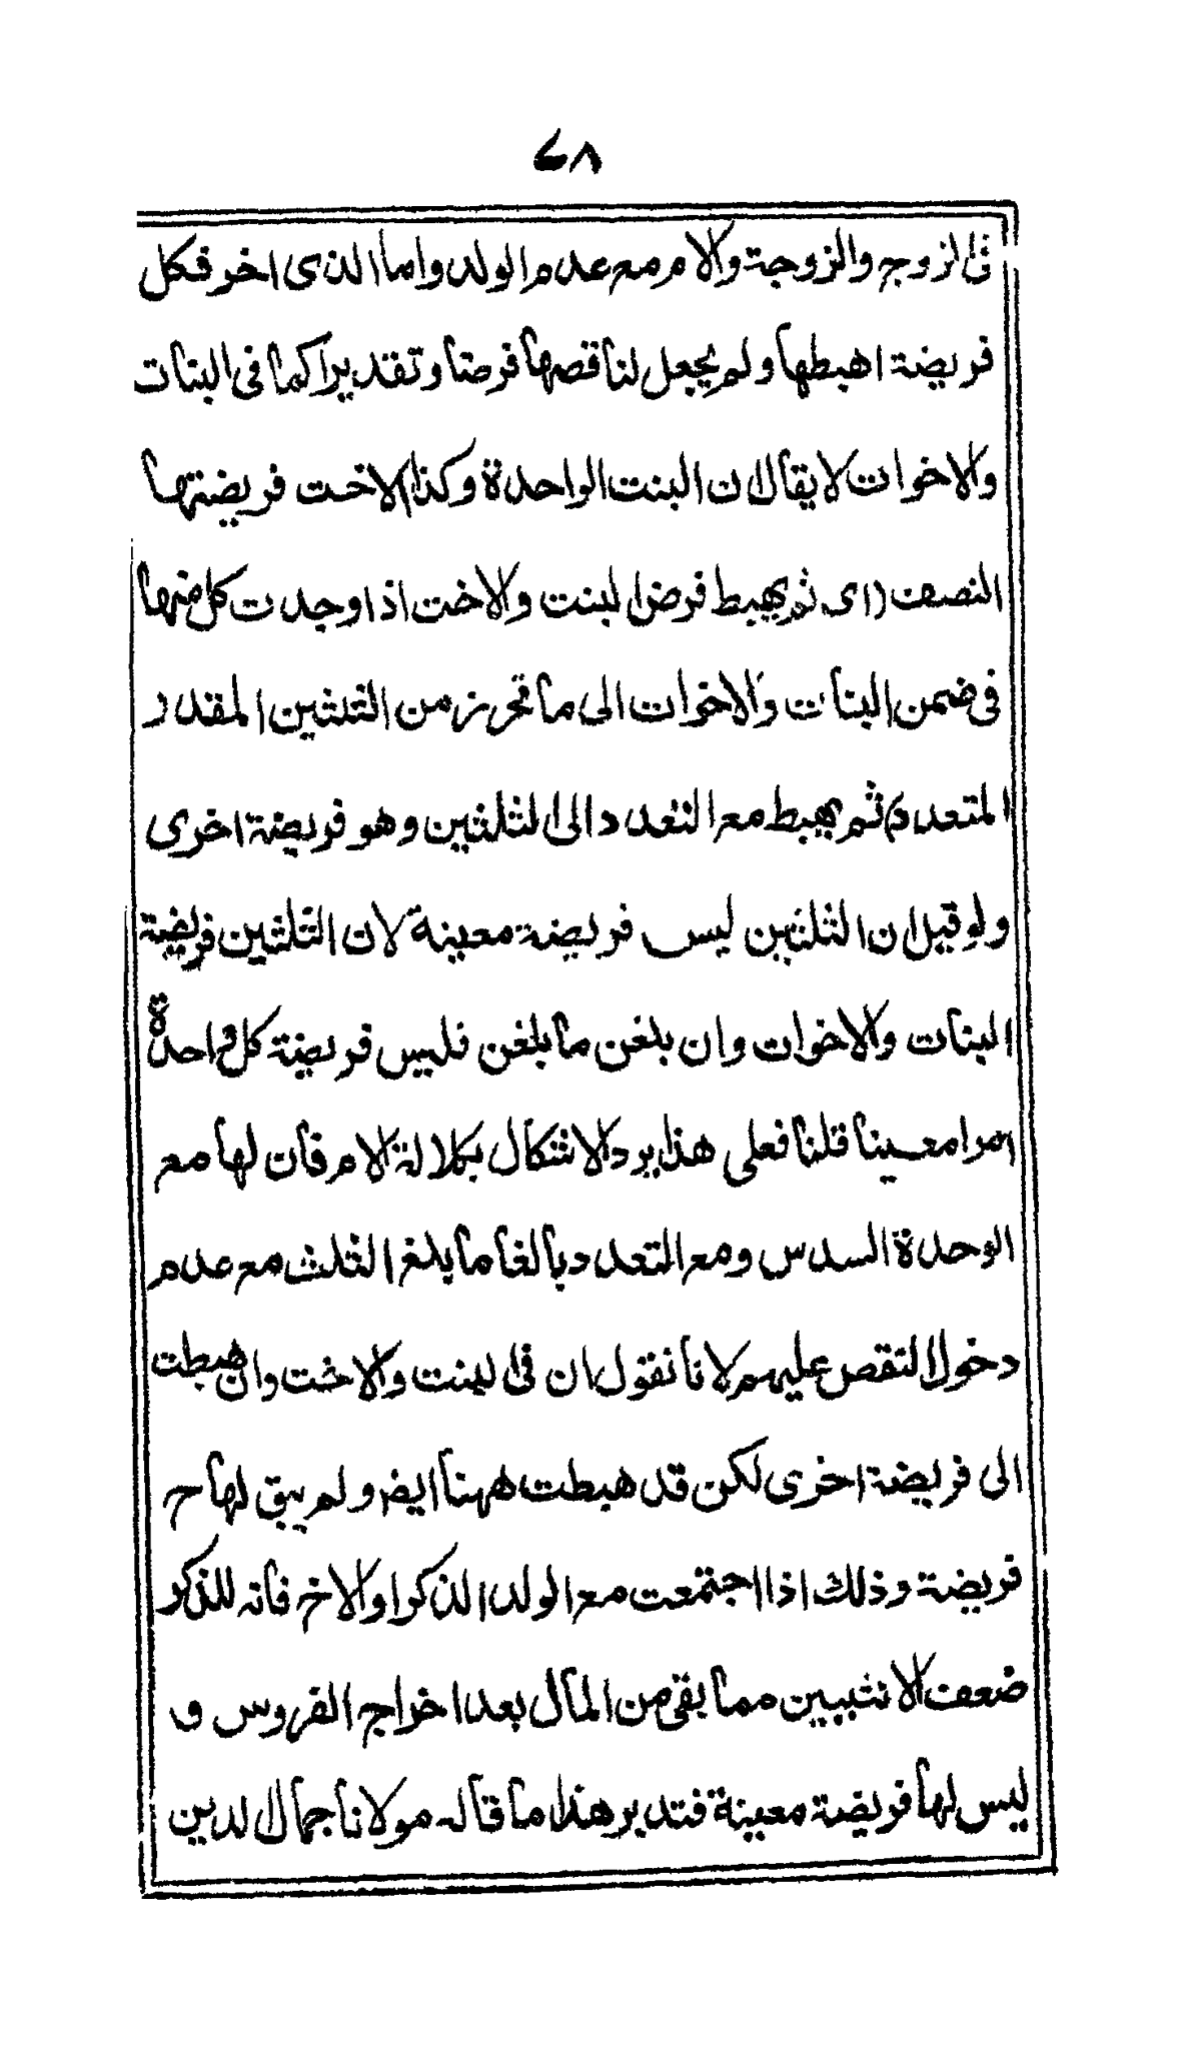 ٦٨
فى الزوج والزوجة والام مع عدم الولد واما الذى اخر فكل
فريضة اهبطها ولم يجعل لناقصها فرضا وتقديرا كما فى البنات
والاخوات لا يقال ان البنت الواحدة وكذا الاخت فريضتها
النصف (اى ثم يهبط فرض البنت والاخت اذا وجدت كل منها
فى ضمن البنات والاخوات الى ما تحرز من الثلثين المقدر
المتعدد) ثم يهبط مع التعدد الى الثلثين وهو فريضة اخرى
ولو قيل ان الثلثين ليس فريضة معينة لان الثلثين فريضة
البنات والاخوات وان بلغن ما بلغن فليس فريضة كل واحدة
امرا معينا قلنا فعلى هذا يرد الاشكال بكلالة الام فان لها مع
الوحدة السدس ومع التعدد بالغا ما بلغ الثلث مع عدم
دخول النقص عليهم لانا نقول ان فى البنت والاخت وان هبطت
الى فريضة اخرى لكن قد هبطت ههنا ايض ولم يبق لها ح
فريضة وذلك اذا اجتمعت مع الولد الذكر او الاخ فانه للذكر
ضعف الانثيين مما بقى من المال بعد اخراج الفروس و
ليس لها فريضة معينة فتدبر هذا ما قاله مولانا جمال الدين